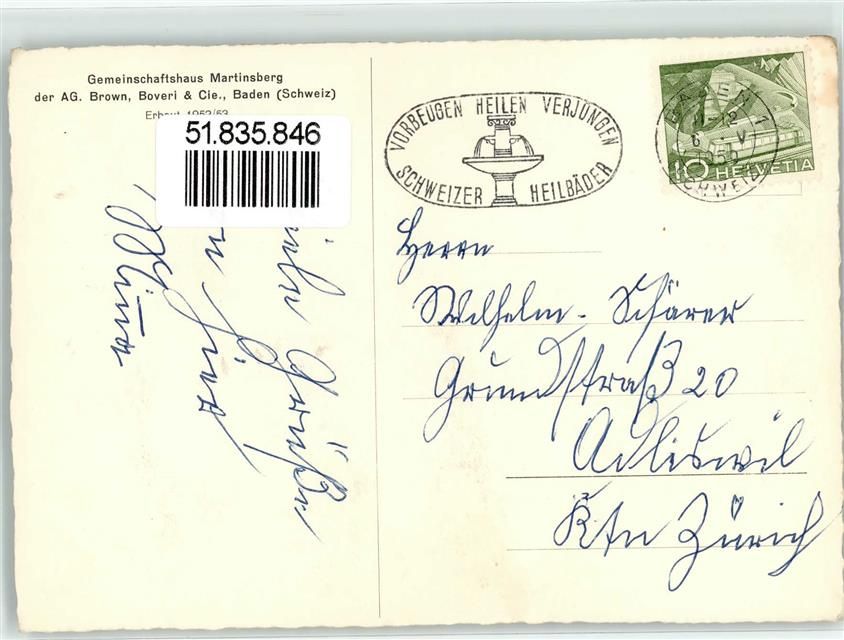 Gemeinschaftshaus Martinsberg
der AG. Brown, Boveri & Cie., Baden (Schweiz)
Erbaut 1952/53
51.835.846
Grüße
VORBEUGEN HEILEN VERJÜNGEN
SCHWEIZER HEILBÄDER
BADEN 1
11-12
6 V
SCHWEIZ
10 HELVETIA
Herrn
Wilhelm Schärer
Grundstraß 20
Adliswil
Ktn Zürich